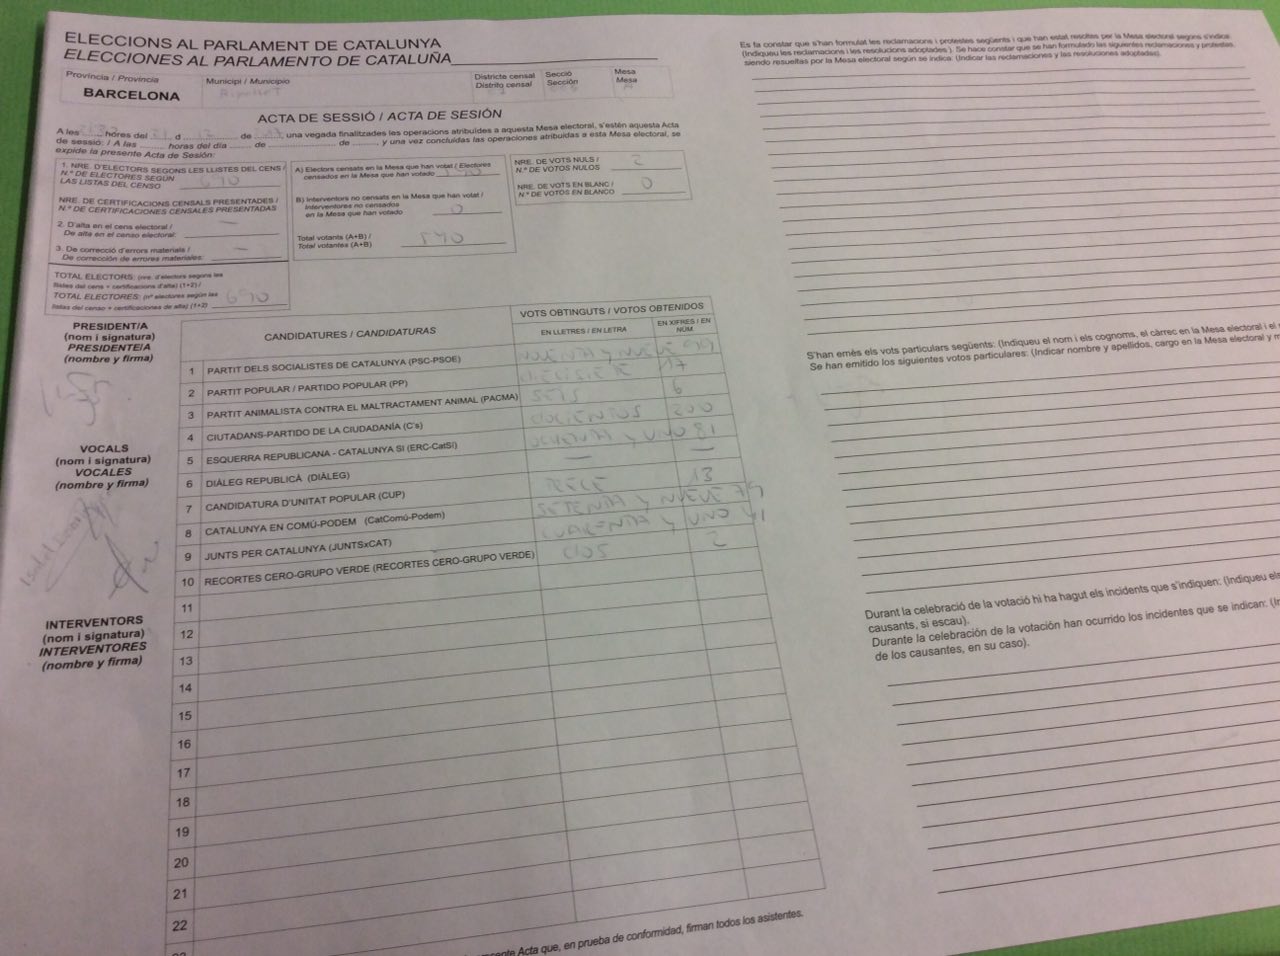 ELECCIONS AL PARLAMENT DE CATALUNYA
ELECCIONES AL PARLAMENTO DE CATALUÑA
Província / Provincia
BARCELONA
Municipi / Municipio
Ripollet
Districte censal
Distrito censal
Secció
Sección
Mesa
Mesa
A
ACTA DE SESSIÓ / ACTA DE SESIÓN
A les ........ hores del ........ d ........ de ........, una vegada finalitzades les operacions atribuïdes a aquesta Mesa electoral, s'estén aquesta Acta
de sessió: / A las ........ horas del día ........ de ........ de ........, y una vez concluidas las operaciones atribuidas a esta Mesa electoral, se
expide la presente Acta de Sesión:
1. NRE. D'ELECTORS SEGONS LES LLISTES DEL CENS /
N.º DE ELECTORES SEGÚN
LAS LISTAS DEL CENSO 690
NRE. DE CERTIFICACIONS CENSALS PRESENTADES /
N.º DE CERTIFICACIONES CENSALES PRESENTADAS
2. D'alta en el cens electoral /
De alta en el censo electoral: —
3. De correcció d'errors materials /
De corrección de errores materiales: —
TOTAL ELECTORS: (nre. d'electors segons les
llistes del cens + certificacions d'alta) (1+2) /
TOTAL ELECTORES: (nº electores según las
listas del censo + certificaciones de alta) (1+2) 690
A) Electors censats en la Mesa que han votat / Electores
censados en la Mesa que han votado 540
B) Interventors no censats en la Mesa que han votat /
Interventores no censados
en la Mesa que han votado 0
Total votants (A+B) /
Total votantes (A+B) 540
NRE. DE VOTS NULS /
N.º DE VOTOS NULOS 2
NRE. DE VOTS EN BLANC /
N.º DE VOTOS EN BLANCO 0
PRESIDENT/A
(nom i signatura)
PRESIDENTE/A
(nombre y firma)
VOCALS
(nom i signatura)
VOCALES
(nombre y firma)
INTERVENTORS
(nom i signatura)
INTERVENTORES
(nombre y firma)
CANDIDATURES / CANDIDATURAS
VOTS OBTINGUTS / VOTOS OBTENIDOS
EN LLETRES / EN LETRA
EN XIFRES / EN NÚM.
1 PARTIT DELS SOCIALISTES DE CATALUNYA (PSC-PSOE) NOVENTA Y NUEVE 99
2 PARTIT POPULAR / PARTIDO POPULAR (PP) DIECISIETE 17
3 PARTIT ANIMALISTA CONTRA EL MALTRACTAMENT ANIMAL (PACMA) SEIS 6
4 CIUTADANS-PARTIDO DE LA CIUDADANÍA (C's) DOCIENTOS 200
5 ESQUERRA REPUBLICANA - CATALUNYA SÍ (ERC-CatSí) OCHENTA Y UNO 81
6 DIÀLEG REPUBLICÀ (DIÀLEG) — —
7 CANDIDATURA D'UNITAT POPULAR (CUP) TRECE 13
8 CATALUNYA EN COMÚ-PODEM (CatComú-Podem) SETENTA Y NUEVE 79
9 JUNTS PER CATALUNYA (JUNTSxCAT) CUARENTA Y UNO 41
10 RECORTES CERO-GRUPO VERDE (RECORTES CERO-GRUPO VERDE) DOS 2
11
12
13
14
15
16
17
18
19
20
21
22
Acta que, en prueba de conformidad, firman todos los asistentes.
Es fa constar que s'han formulat les reclamacions i protestes següents i que han estat resoltes per la Mesa electoral segons s'indica:
(Indiqueu les reclamacions i les resolucions adoptades). Se hace constar que se han formulado las siguientes reclamaciones y protestas,
siendo resueltas por la Mesa electoral según se indica: (Indicar las reclamaciones y las resoluciones adoptadas).
S'han emès els vots particulars següents: (Indiqueu el nom i els cognoms, el càrrec en la Mesa electoral i el
Se han emitido los siguientes votos particulares: (Indicar nombre y apellidos, cargo en la Mesa electoral y
Durant la celebració de la votació hi ha hagut els incidents que s'indiquen: (Indiqueu els
causants, si escau).
Durante la celebración de la votación han ocurrido los incidentes que se indican:
de los causantes, en su caso).